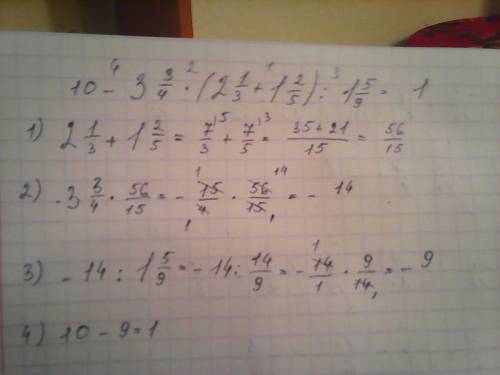 10 -⁴ 3 3/4 ·² (2 1/3 +¹ 1 2/5) :³ 1 5/9 = 1
1) 2 1/3 + 1 2/5 = 7/3 ⁵ + 7/5 ³ = 35+21/15 = 56/15
2) -3 3/4 · 56/15 = - 15/4 · 56/15 = - 14
3) - 14 : 1 5/9 = - 14 : 14/9 = - 14/1 · 9/14 = - 9
4) 10 - 9 = 1